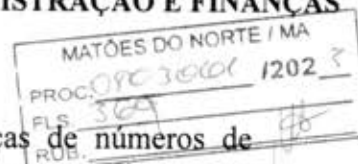 ISTRAÇÃO E FINANÇAS
MATÕES DO NORTE / MA
PROC. 0803001 /2023
FLS. 369
cas de números de
RUB.